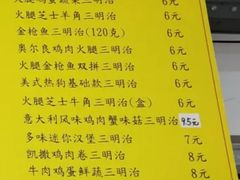 火腿鸡蛋蔬菜三明治 6元
火腿芝士羊角三明治 6元
金枪鱼三明治(120克) 6元
奥尔良鸡肉火腿三明治 6元
火腿金枪鱼双拼三明治 6元
美式热狗基础款三明治 6元
火腿芝士牛角三明治(盒) 6元
意大利风味鸡肉蟹味菇三明治 9.5元
多味迷你汉堡三明治 7元
凯撒鸡肉卷三明治 8元
牛肉鸡蛋鲜蔬三明治 8元